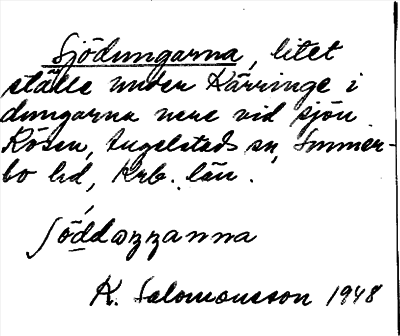 Sjödungarna, litet
ställe under Kärringe i
dungarna nere vid sjön
Rösen, Angelstads sn, Sunner-
bo hd, Krb. län.
K. Salomonsson 1948